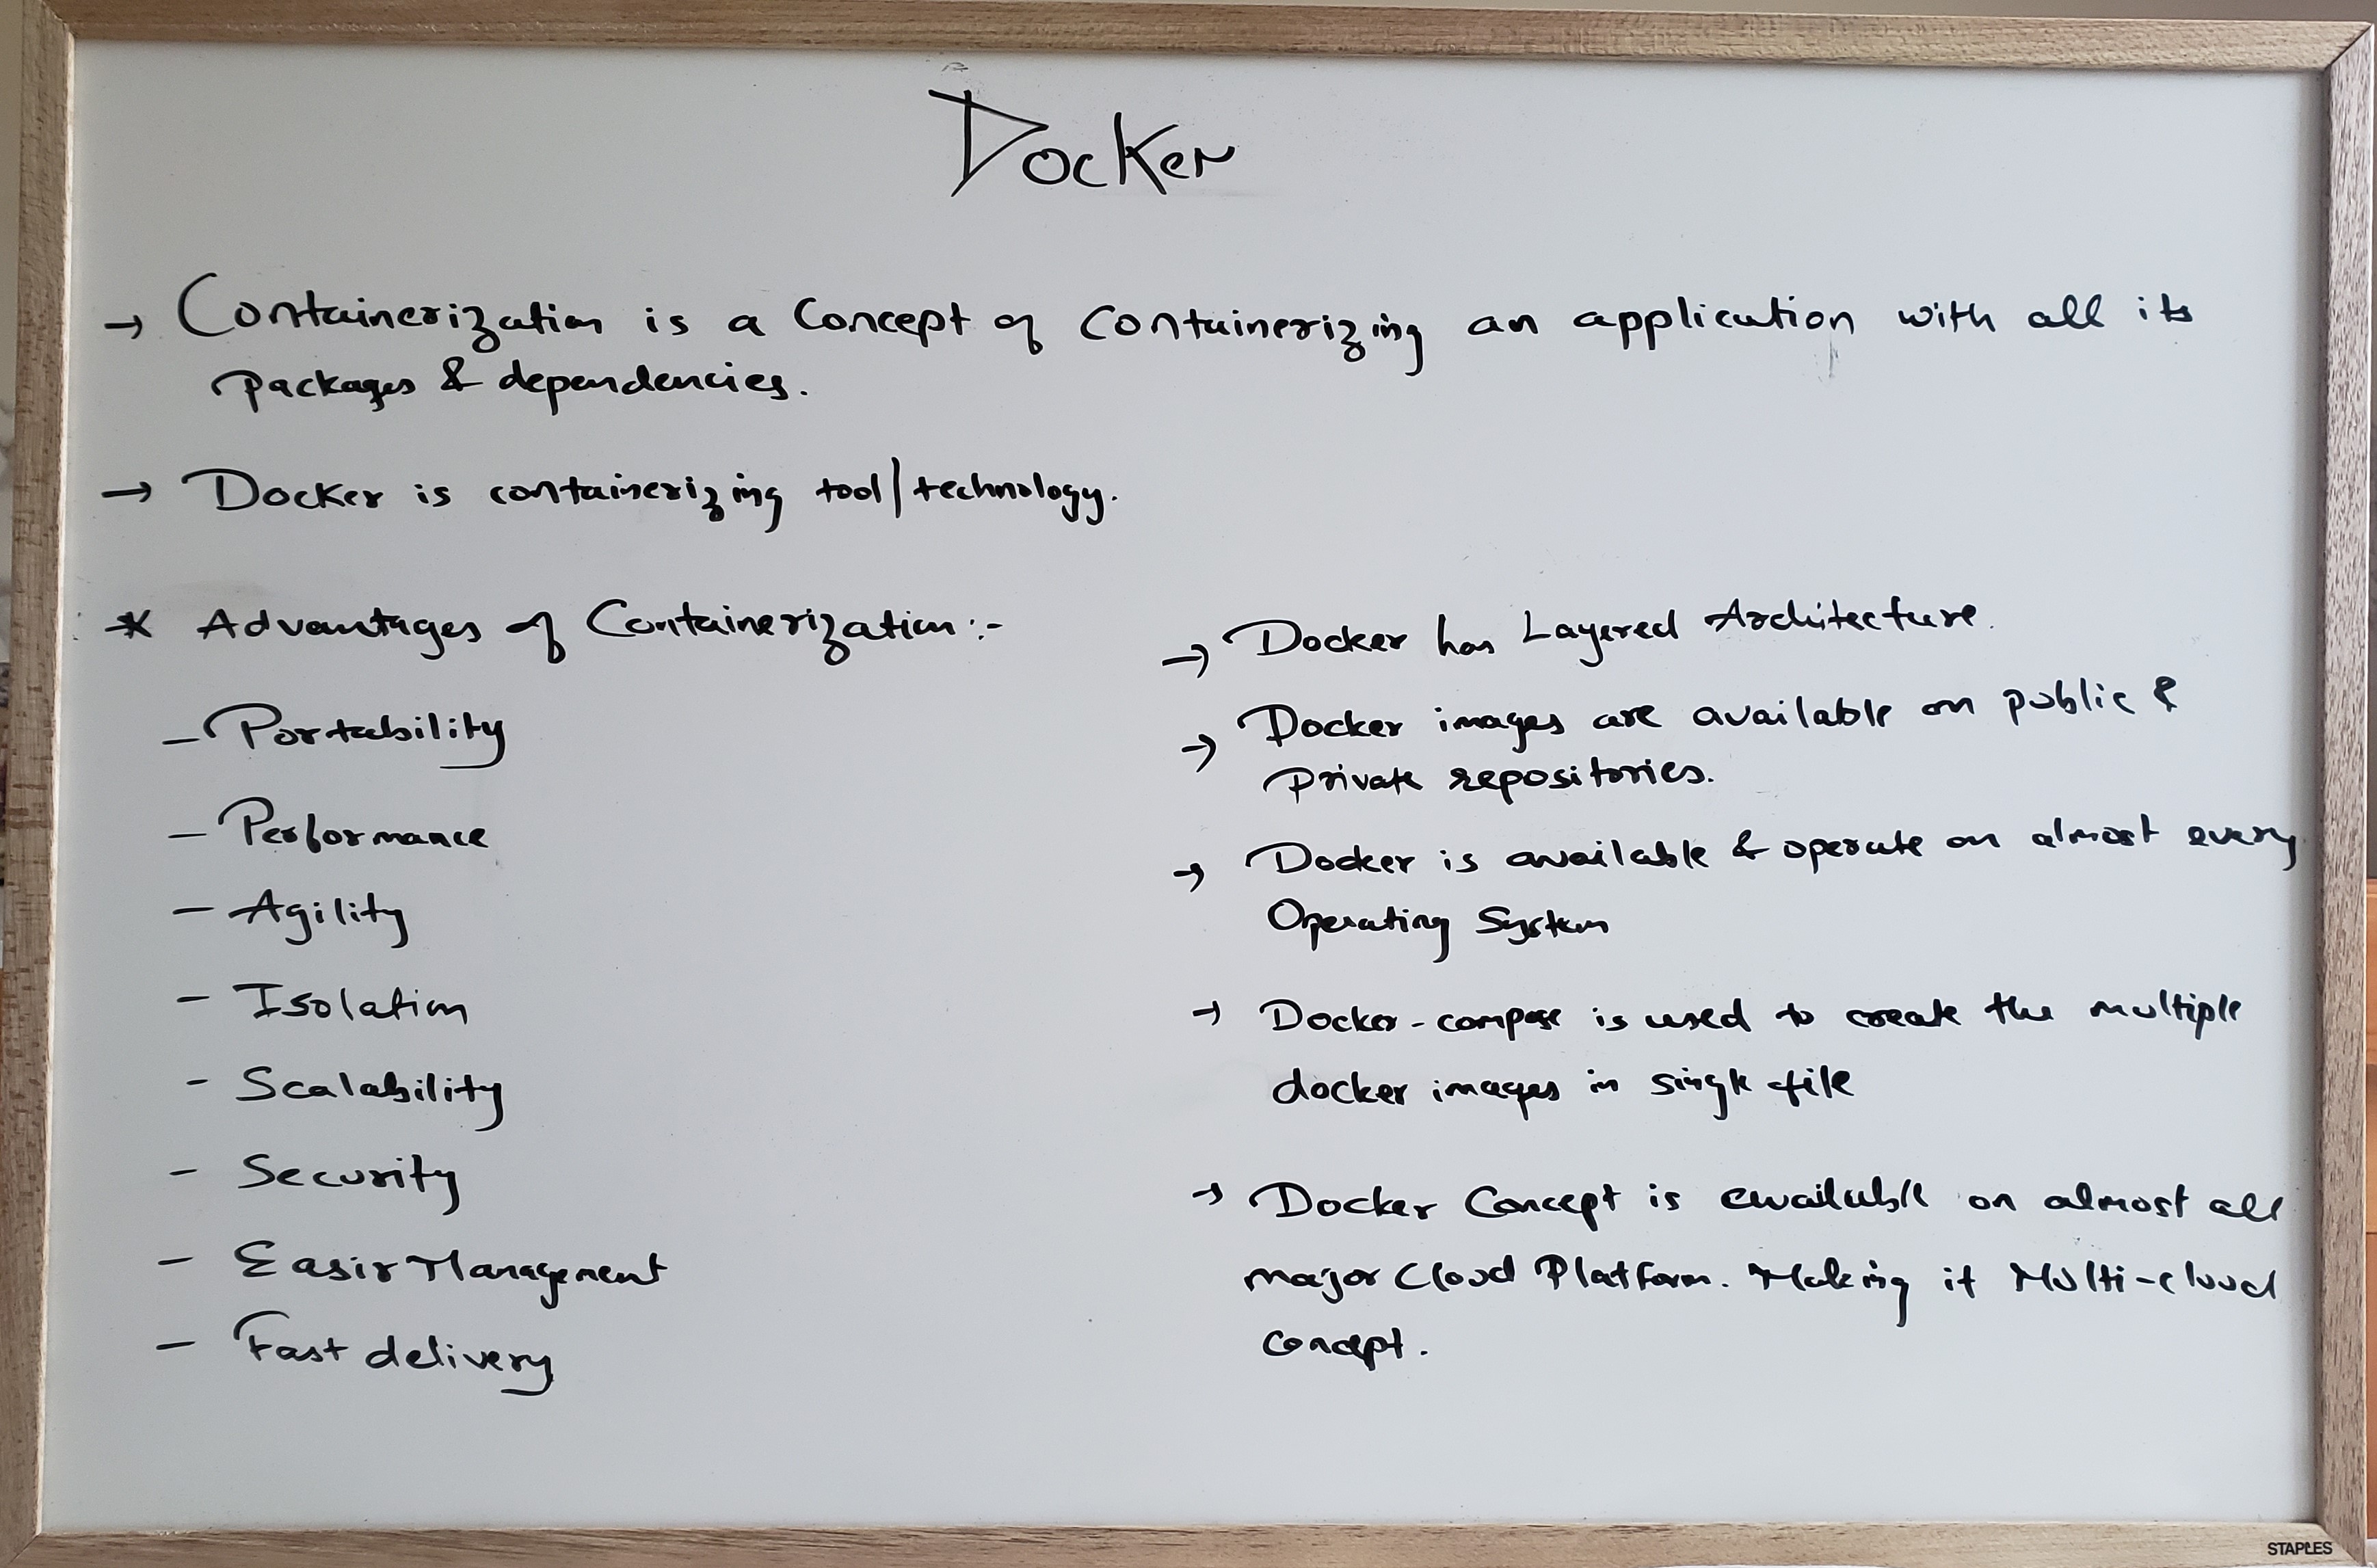 Docker
→ Containerization is a Concept of Containerizing an application with all its
packages & dependencies.
→ Docker is containerizing tool/technology.
* Advantages of Containerization:-
- Portability
- Performance
- Agility
- Isolation
- Scalability
- Security
- Easir Management
- Fast delivery
→ Docker has Layered Architecture.
→ Docker images are available on public &
Private repositories.
→ Docker is available & operate on almost every
Operating System
→ Docker-compose is used to create the multiple
docker images in single file
→ Docker Concept is available on almost all
major Cloud Platform. Making it Multi-cloud
concept.
STAPLES